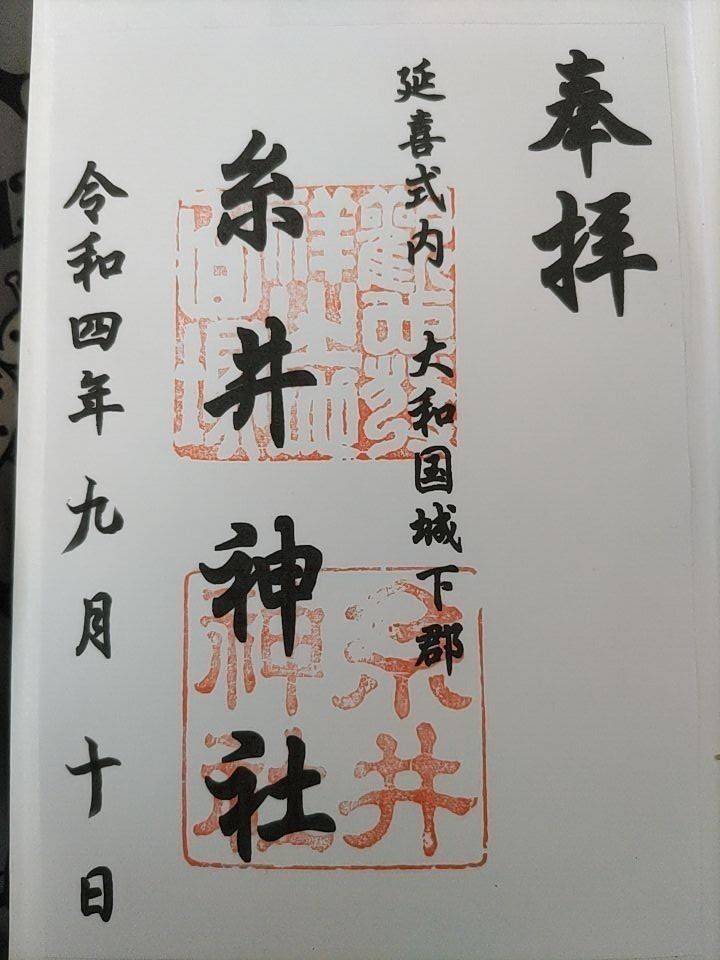 奉拝
延喜式内 大和国城下郡
糸井神社
令和四年 九月 十日
糸井
神社